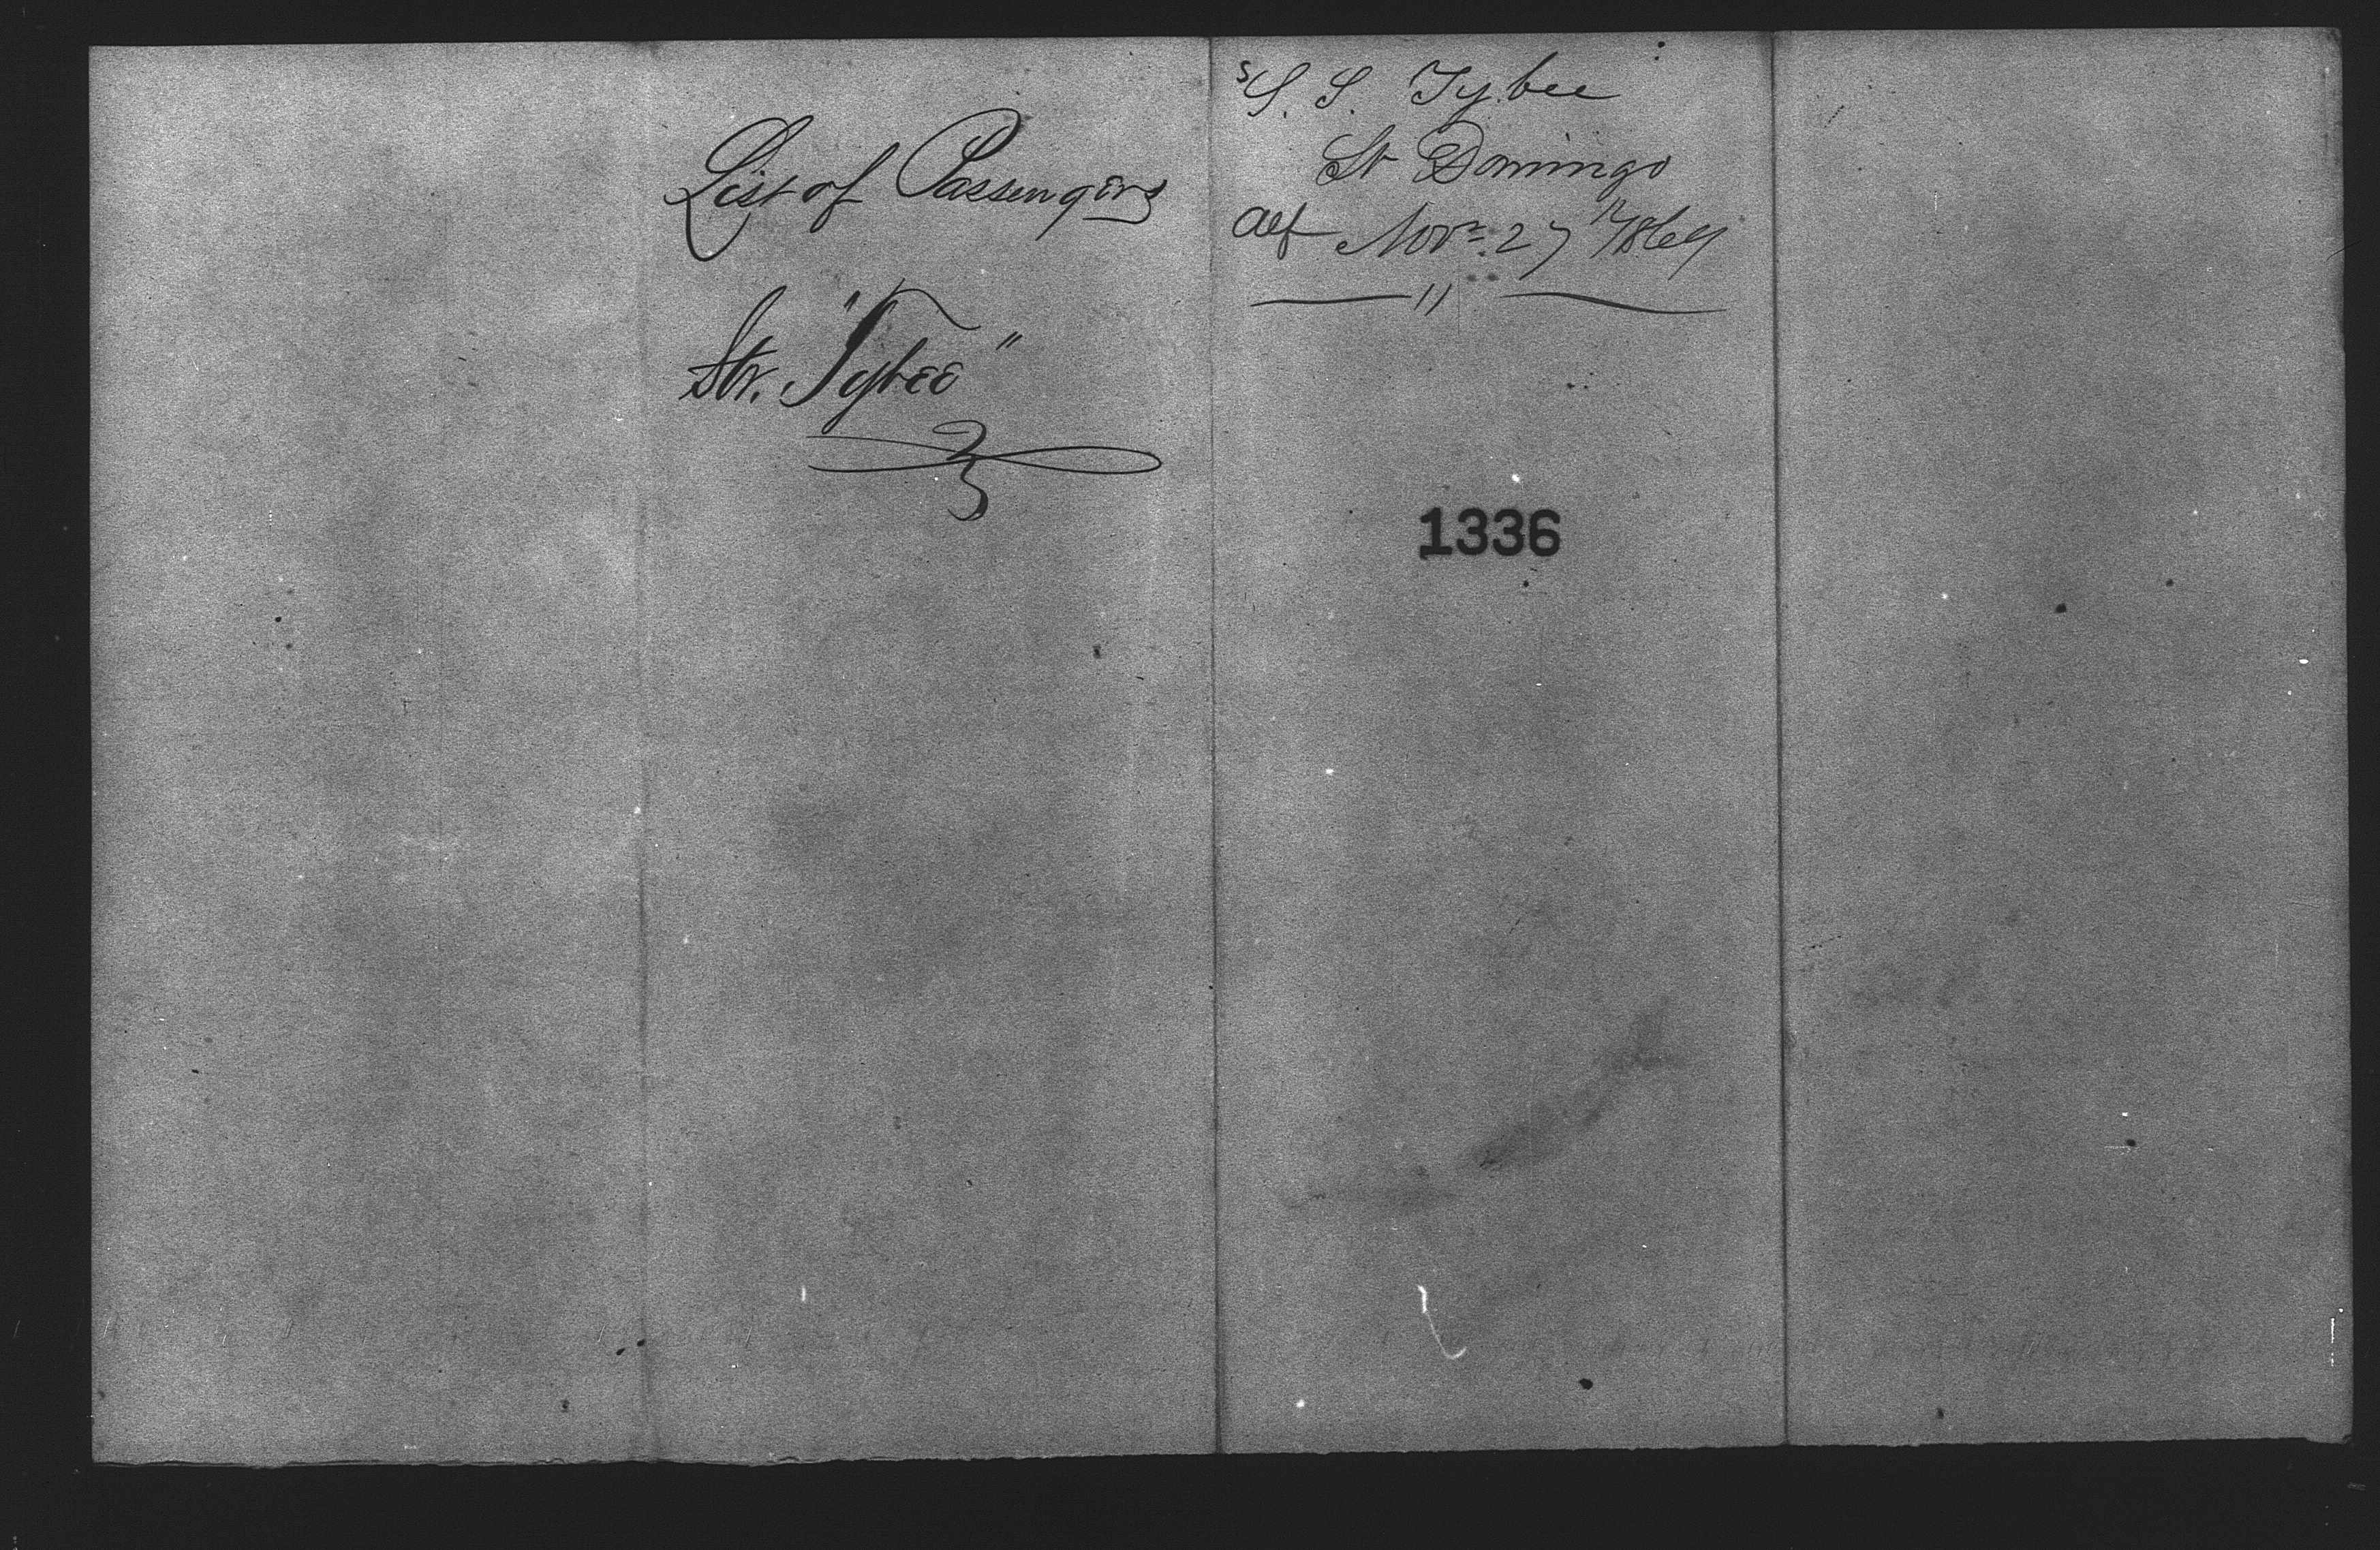 List of Passengers
Str. "Tybee"
S. S. Tybee
St Domingo
Nov. 27
1336